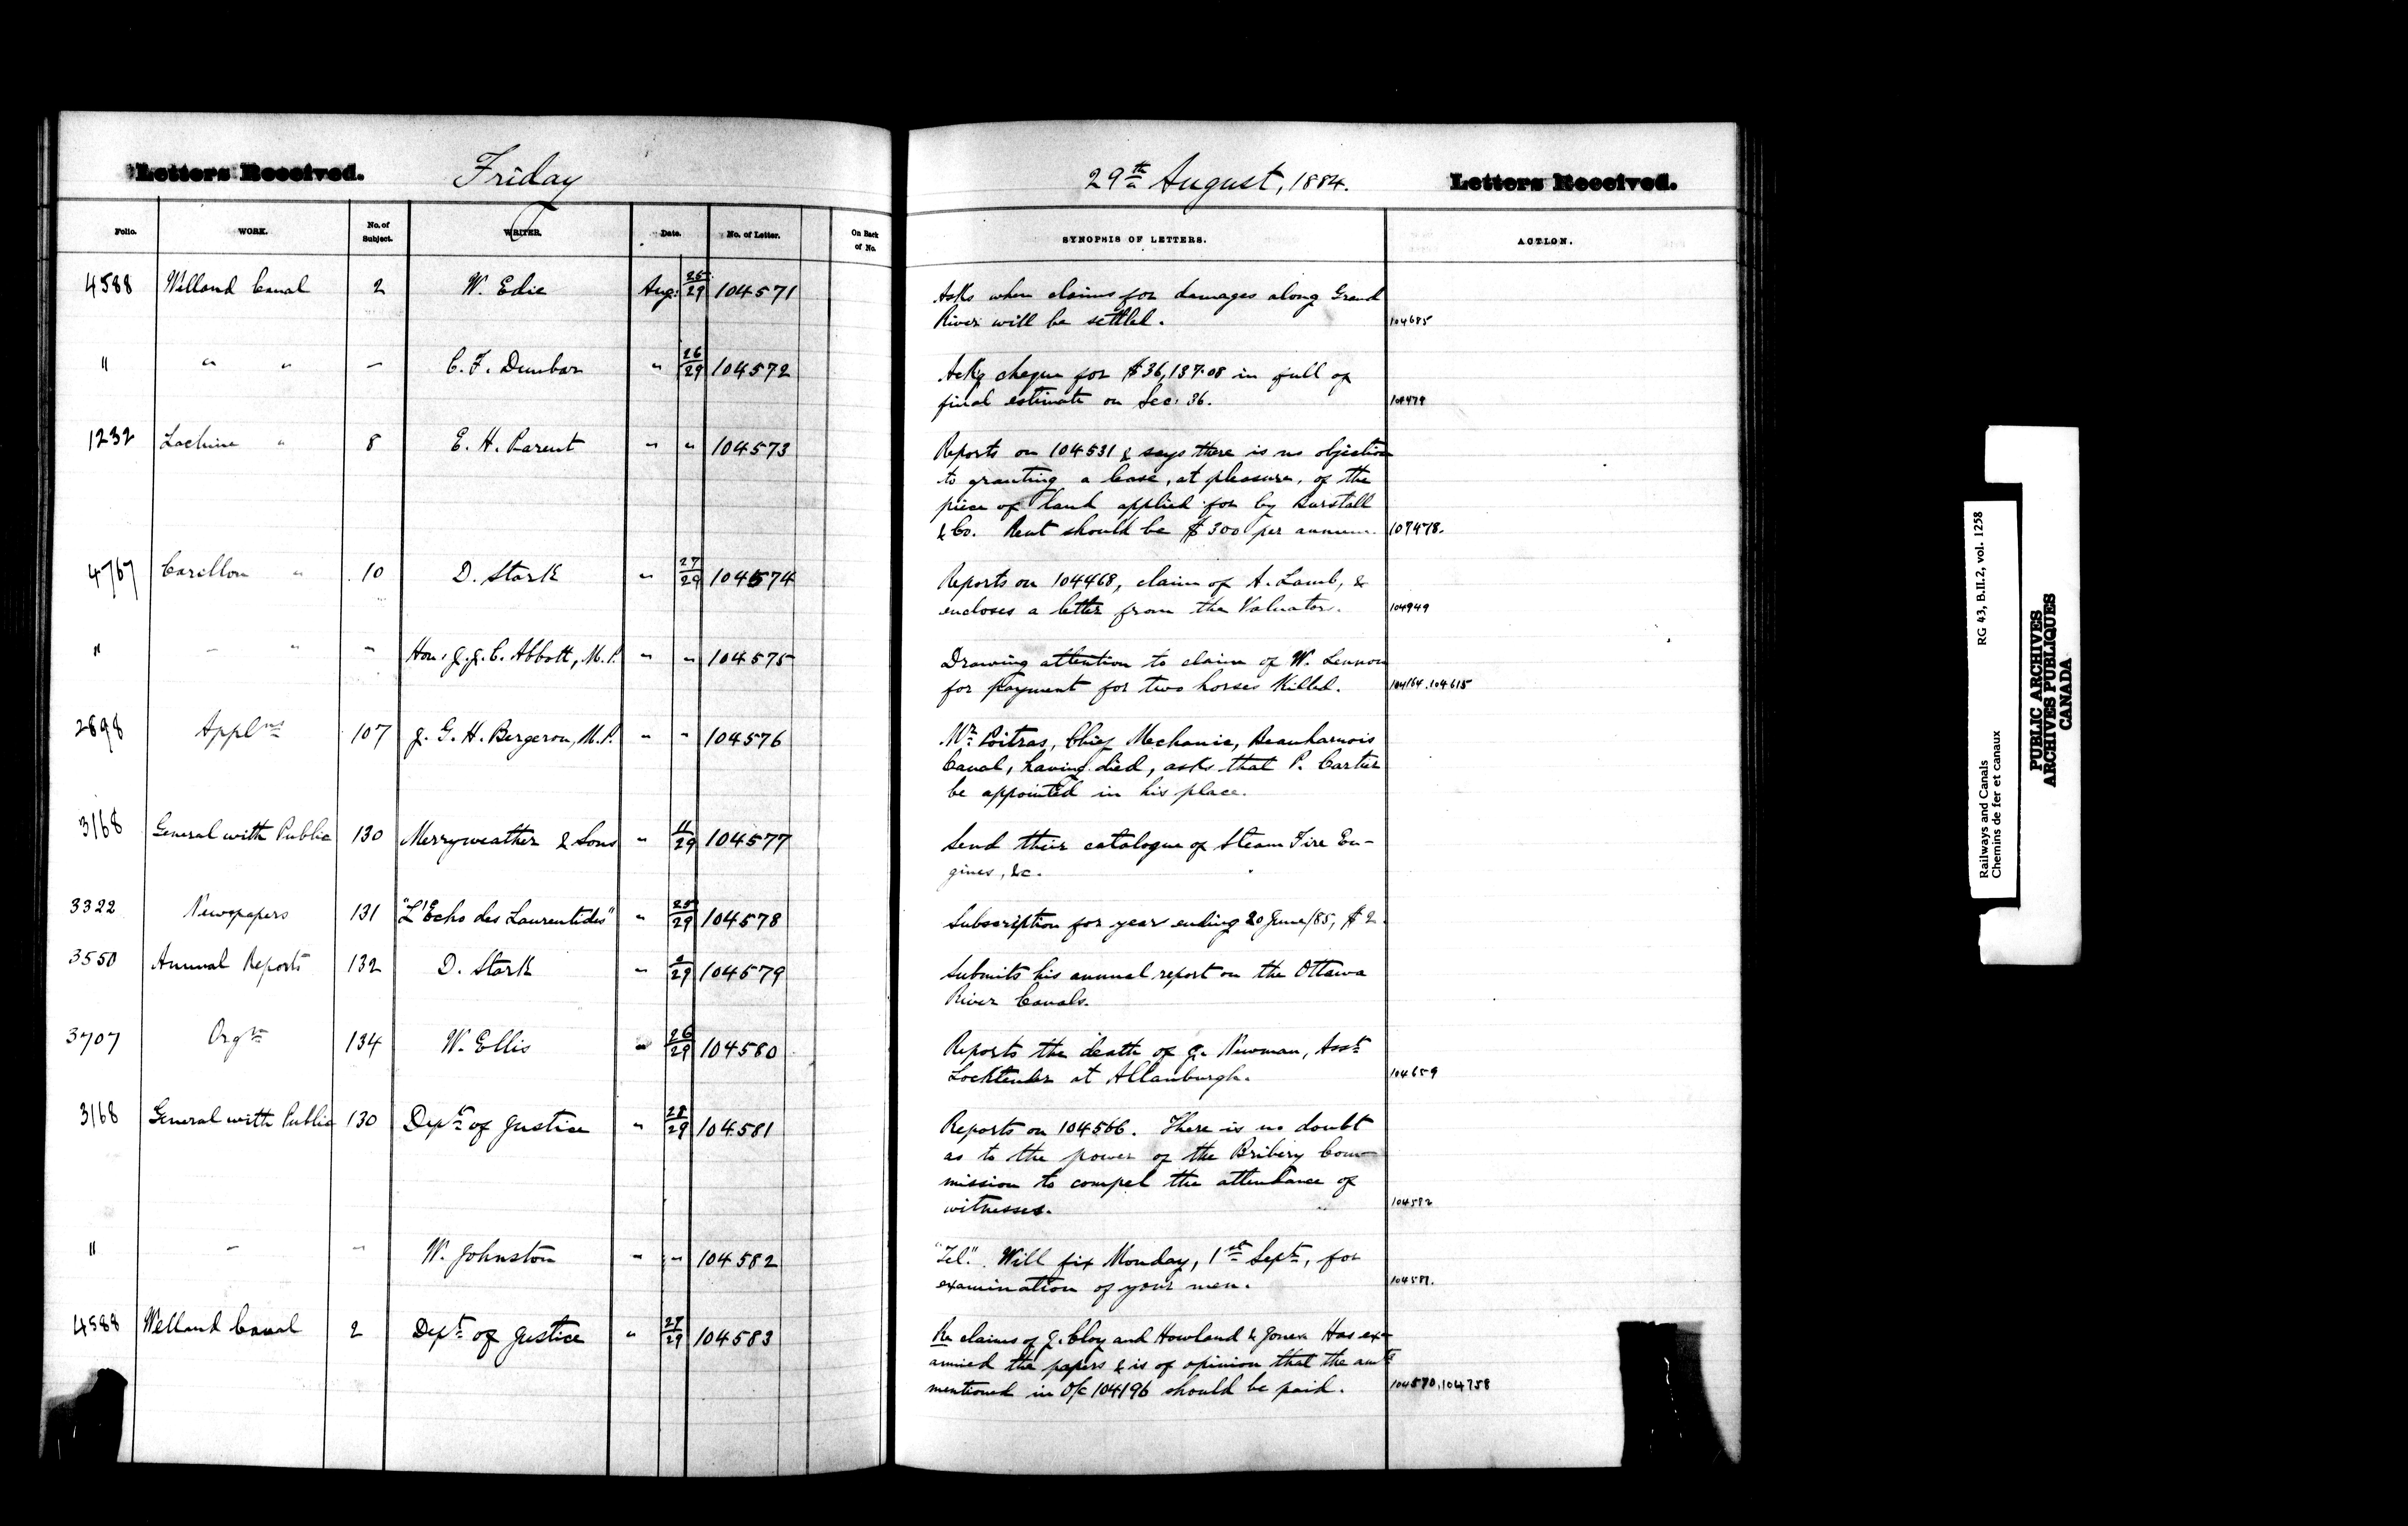 Letters Received. Friday
29th August, 1884. Letters Received.
Folio. WORK. No. of Subject. WRITER. Date. No. of Letter. On Back of No.
SYNOPSIS OF LETTERS. ACTION.
4588 Welland Canal 2 W. Edie Aug: 25/29 104571
Asks when claims for damages along Grand
River will be settled. 104685
" " " – C. F. Dunbar " 26/29 104572
Ackg cheque for $36,137.08 in full of
final estimate on Sec: 36. 104479
1232 Lachine " 8 E. H. Parent " " 104573
Reports on 104531 & says there is no objection
to granting a lease, at pleasure, of the
piece of land applied for by Burstall
& Co. Rent should be $300 per annum. 107478.
4767 Carillon " 10 D. Stark " 27/29 104574
Reports on 104468, claim of A. Lamb, &
encloses a letter from the Valuator. 104949
" – " " Hon. J. J. C. Abbott, M.P. " " 104575
Drawing attention to claim of W. Lennon
for payment for two horses killed. 104164. 104615
2898 Applns 107 J. G. H. Bergeron, M.P. " " 104576
Mr. Poitras, Chief Mechanic, Beauharnois
Canal, having died, asks that P. Cartier
be appointed in his place.
3168 General with Public 130 Merryweather & Sons " 11/29 104577
Send their catalogue of Steam Fire En-
gines, &c.
3322 Newspapers 131 "L'Echo des Laurentides" " 25/29 104578
Subscription for year ending 20 June/85, $2.
3550 Annual Reports 132 D. Stark " /29 104579
Submits his annual report on the Ottawa
River Canals.
3707 Orgn 134 W. Ellis " 26/29 104580
Reports the death of J. Newman, Asst
Locktender at Allanburgh. 104659
3168 General with Public 130 Dept of Justice " 28/29 104581
Reports on 104566. There is no doubt
as to the power of the Bribery Com-
mission to compel the attendance of
witnesses. 104582
" – – W. Johnston " " 104582
"Tel". Will fix Monday, 1st Sept, for
examination of your men. 104581.
4588 Welland Canal 2 Dept of Justice " 27/29 104583
Re claims of J. Cloy and Howland & Jones. Has ex-
amined the papers & is of opinion that the amts
mentioned in O/c 104196 should be paid. 104570, 104758
Railways and Canals RG 43, B.II.2, vol. 1258
Chemins de fer et canaux
PUBLIC ARCHIVES
ARCHIVES PUBLIQUES
CANADA